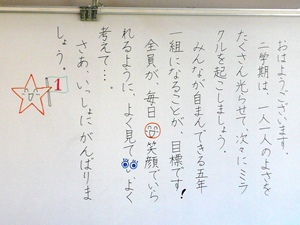 おはようございます。
二学期は、一人一人のよさを
たくさん光らせて、次々にミラ
クルを起こしましょう。
みんなが自まんできる五年
一組になることが、目標です!
全員が、毎日笑顔でいら
れるように、よく見てよく
考えて…。
さあ、いっしょにがんばりま
しょう。
1